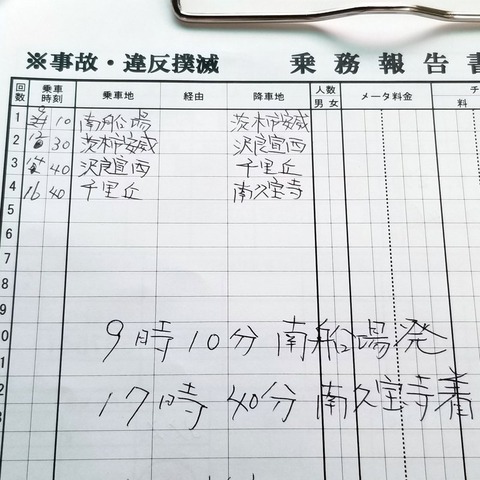 ※事故・違反撲滅 乗務報告書
回数 乗車時刻 乗車地 経由 降車地 人数 男 女 メータ料金 チ 料
1 9 10 南船場 茨木市安威
2 30 茨木市安威 沢良宜西
3 40 沢良宜西 千里丘
4 16 40 千里丘 南久宝寺
5
6
7
8
9
9時10分 南船場発
17時40分 南久宝寺着